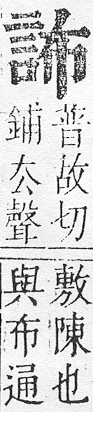 誧
普故切
鋪去聲
敷陳也
與布通